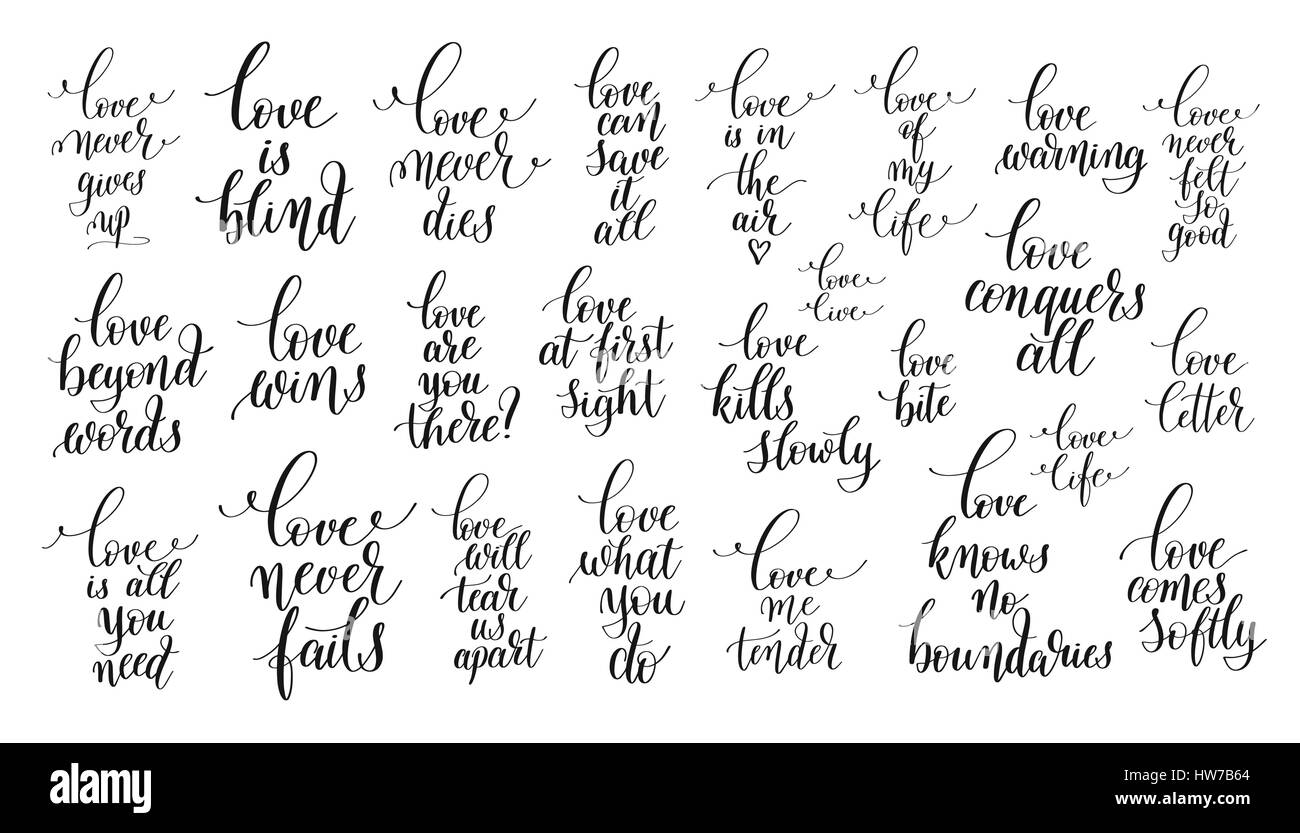 love
never
gives
up
love
is
blind
love
never
dies
love
can
save
it
all
love
is in
the
air
love
of
my
life
love
warning
love
never
felt
so
good
love
beyond
words
love
wins
love
are
you
there?
love
at first
sight
love
kills
slowly
love
live
love
bite
love
conquers
all
love
letter
love
is all
you
need
love
never
fails
love
will
tear
us
apart
love
what
you
do
love
me
tender
love
knows
no
boundaries
love
life
love
comes
softly
alamy
Image ID: HW7B64
www.alamy.com